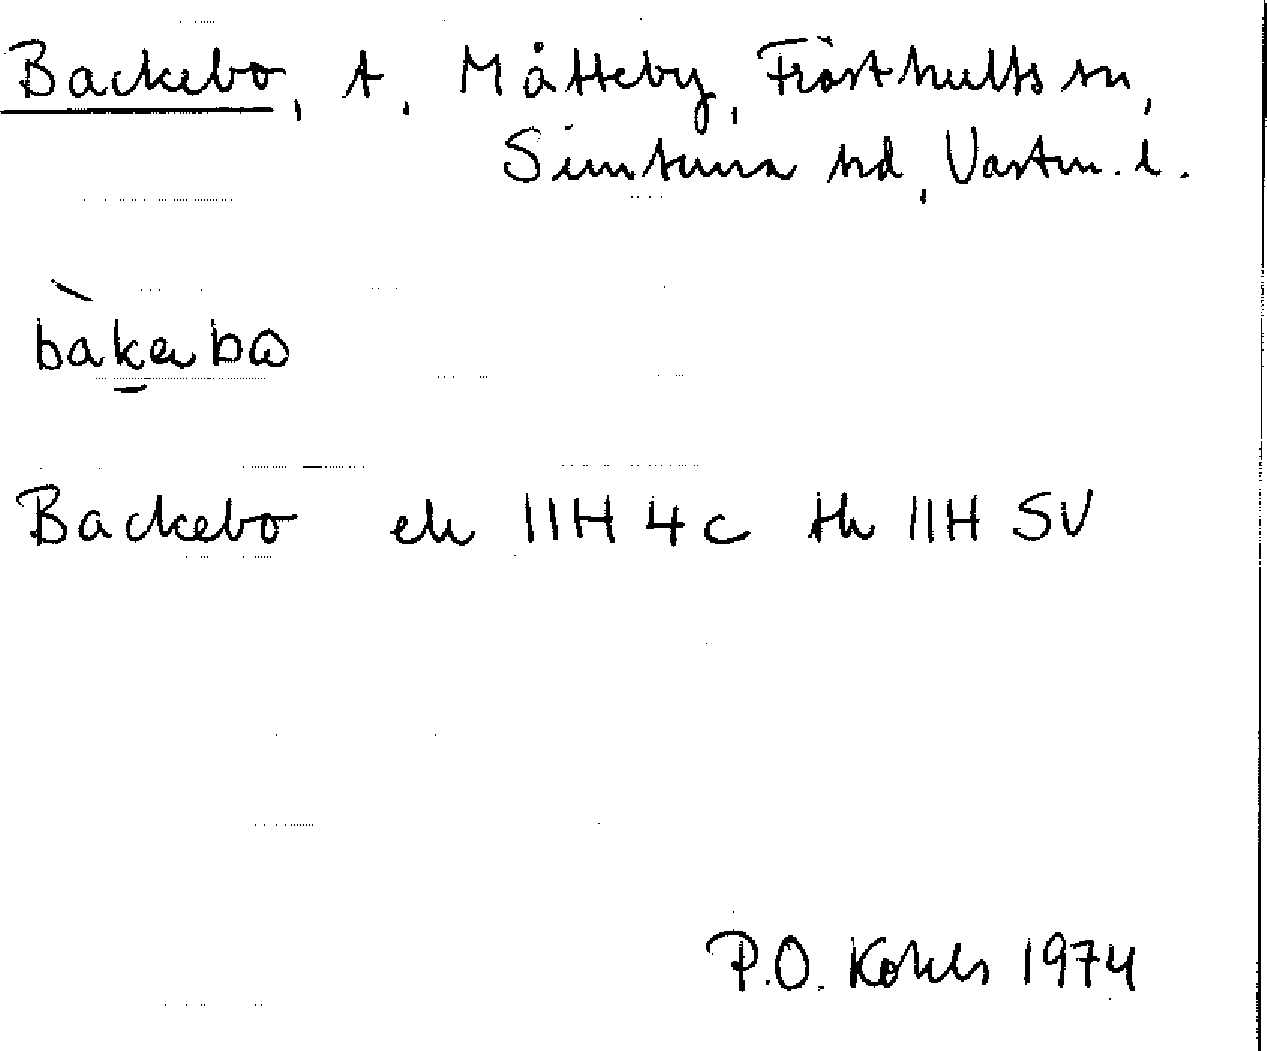 Backebo, t. Måtteby, Frösthults sn,
Simtuna hd, Västm. l.
bakebo
Backebo ek 11H 4c th 11H SV
P.O. Kohls 1974